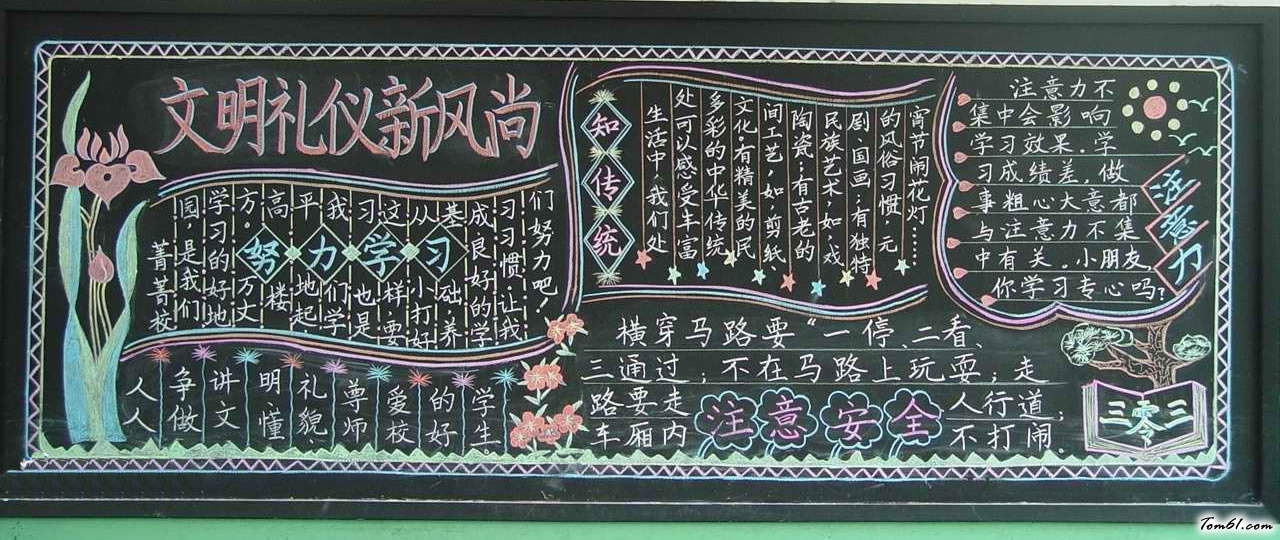 文明礼仪新风尚
努力学习
菁菁校
园,是我们
学习的好地
方。万丈
高楼
平地起
我们学
习也是
这样,要
从小打好
基础,养
成良好的学
习习惯,让我
们努力吧!
人人
争做
讲文
明懂
礼貌、
尊师
爱校
的好
学生。
知传统
生活中,我们处
处可以感受丰富
多彩的中华传统
文化:有精美的民
间工艺,如:剪纸、
陶瓷;有古老的
民族艺术,如:戏
剧、国画;有独特
的风俗习惯,元
宵节闹花灯……
注意力
注意力不
集中会影响
学习效果,学
习成绩差,做
事粗心大意都
与注意力不集
中有关。小朋友,
你学习专心吗?
横穿马路要“一停、二看、
三通过;不在马路上玩耍;走
路要走人行道;
车厢内不打闹。
注意安全
三零三
Tom61.com